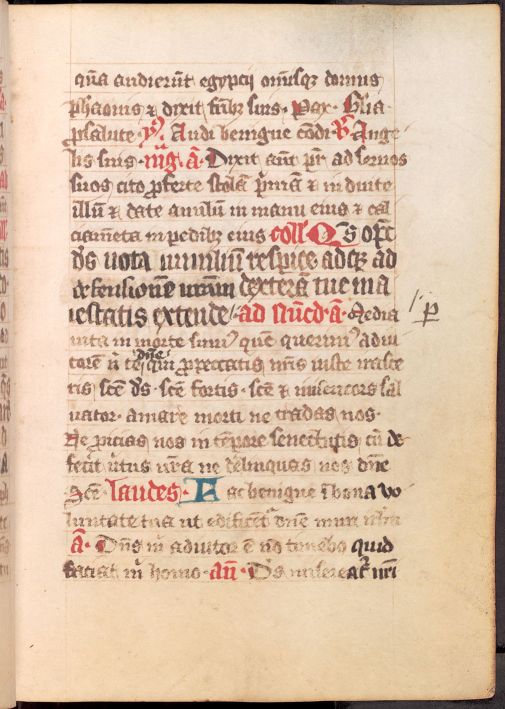 qūa audierūt egyptij om̄isqꝫ domus
pharaonis ⁊ dixit frībꝫ suis · Pax · Glīa
ꝓ salute · ℣ Audi benigne cōdi · ℟ Ange
lis suis · mḡ · ā · Dixit aūt pr̄ ad seruos
suos cito ꝓferte stolā p̄mā ⁊ induite
illū ⁊ date anulū in manu eius ⁊ cal
ciam̄eta in pedibꝫ eius coll̄ Qs op̄c
ds̄ uota humiliū respice atqꝫ ad
defensionē nr̄am dexterā tue ma
iestatis extende · ad nūcd · ā · Media
uita in morte sumꝰ quē querimꝰ adiu
torē n̄ te dn̄e qui ꝓ peccatis nr̄is iuste irasce
ris sc̄e ds̄ · sc̄e fortis · sc̄e ⁊ misericors sal
uator · amare morti ne tradas nos ·
Ne ꝓicias nos in tēpore senectutis cū de
fec̄it uirtus nr̄a ne delinquas nos dn̄e
Sc̄e · laudes · Fac benigne ī bona uo
luntate tua ut edificent᷑ dn̄e muri
ā · Dn̄s m̄ adiutor ē nō timebo quid
faciat m̄ homo · añ · Ds̄ misereat᷑ nr̄i
ꝑ